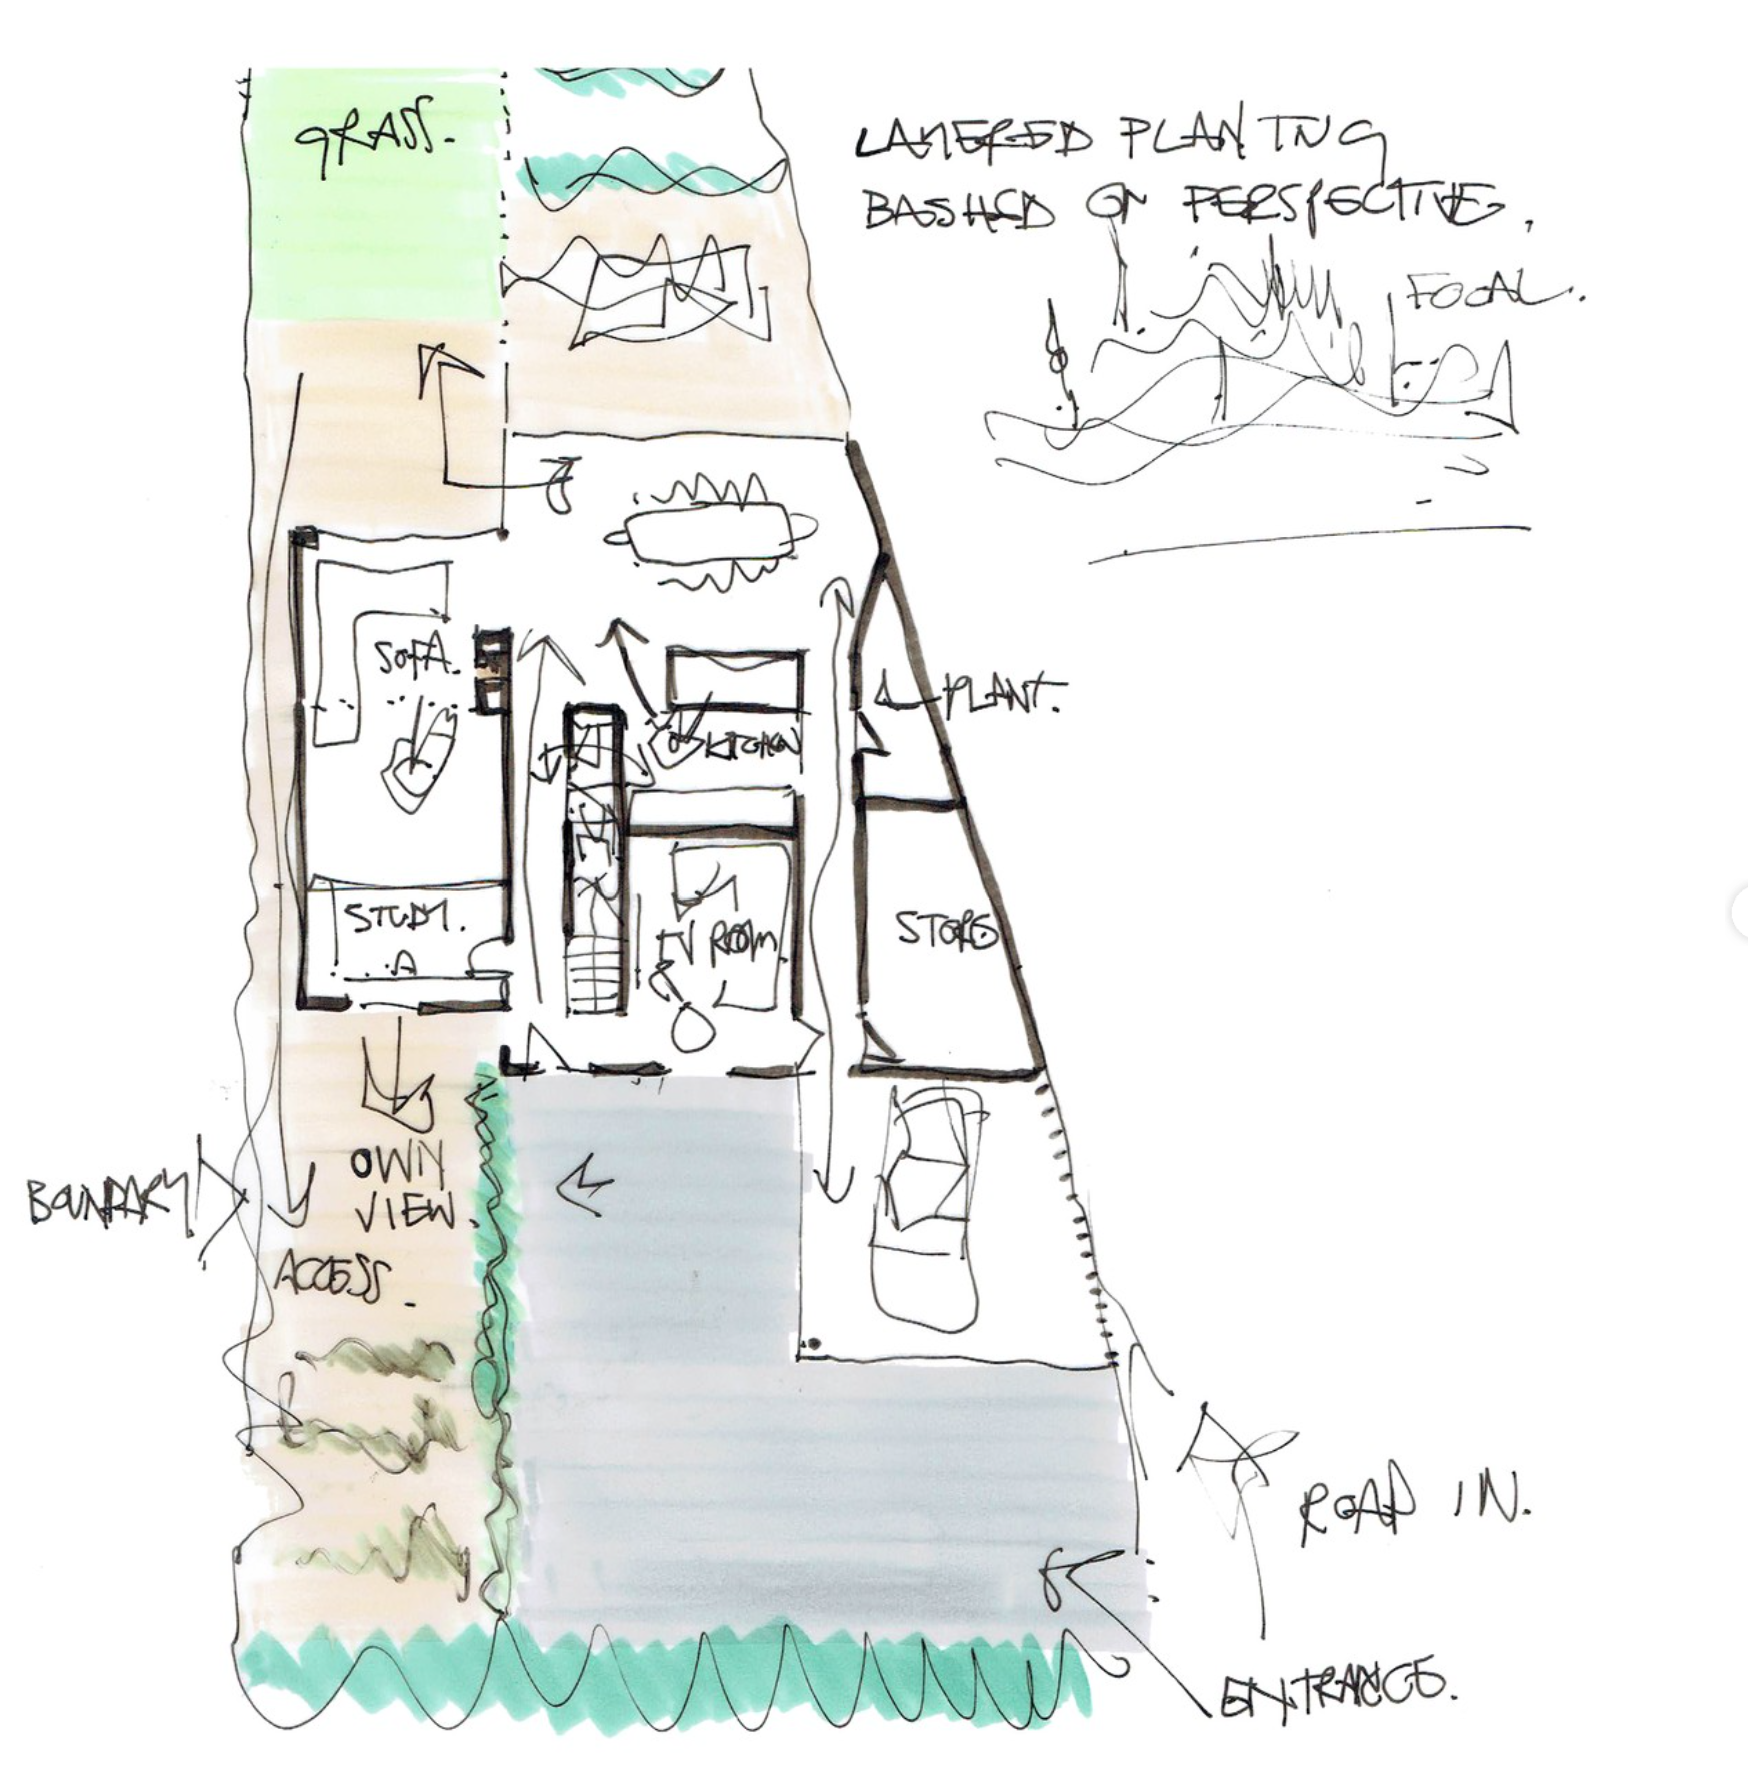 GRASS.
LAYERED PLANTING
BASHED ON PERSPECTIVE.
FOCAL.
SOFA.
PLANT.
KITCHEN
STUDY.
TV ROOM
STORE
OWN
VIEW.
BOUNDARY
ACCESS.
ROAD IN.
ENTRANCE.